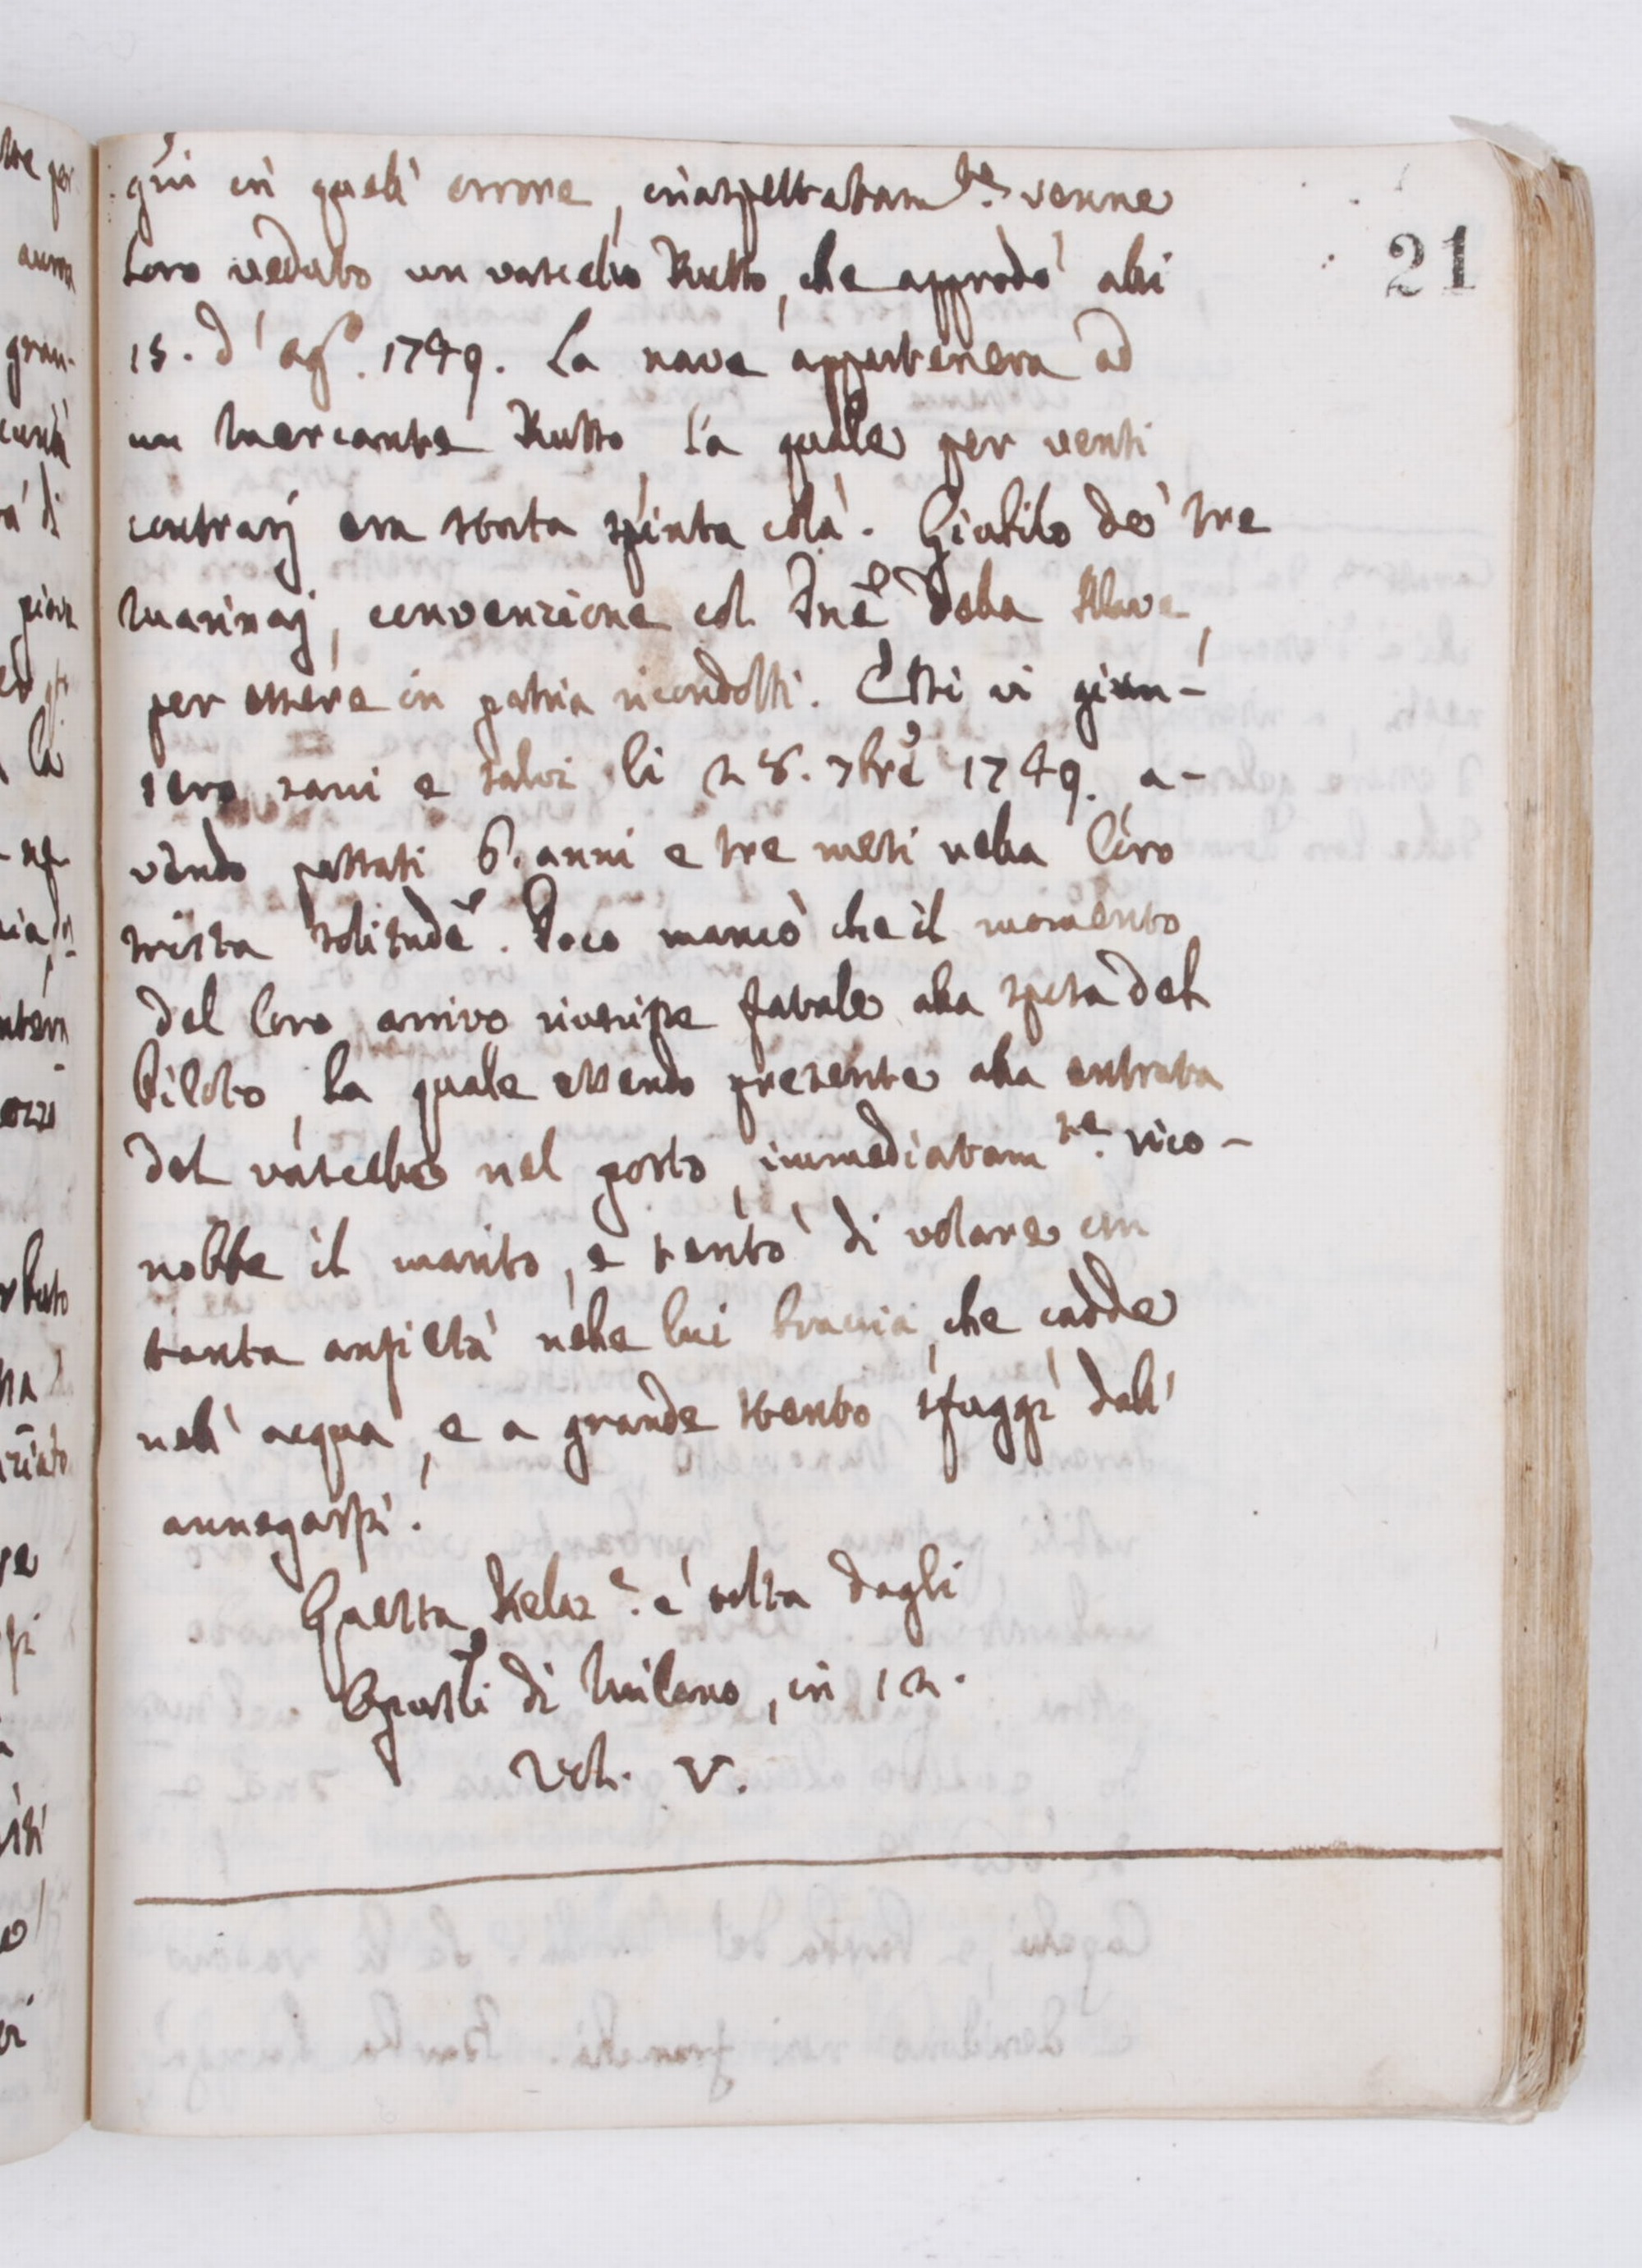 21
gni in quell' orrore, inaspettatam.te venne
loro veduto un vascello Russo, che approdò alli
15. d' ag.º 1749. La nave apparteneva ad
un Mercante Russo, la quale per venti
contrarj era stata spinta colà. Giubilo de' tre
Marinaj, convenzione col Pne della Nave,
per essere in patria ricondotti. Essi vi giun-
sero sani e salvi li 28. 7bre 1749. a-
vendo passati 6. anni e tre mesi nella loro
trista solitudĕ. Poco mancò che il momento
del loro arrivo riuscisse fatale alla sposa del
Piloto, la quale essendo presente alla entrata
del vascello nel porto, immediatam.te rico-
nobbe il marito, e tentò di volare con
tanta ansietà nelle lui braccia, che cadde
nell' acqua, e a grande stento sfuggì dall'
annegarsi.
Questa Relaz.e è tolta dagli
Opusli di Milano, in 12.
Vol. V.